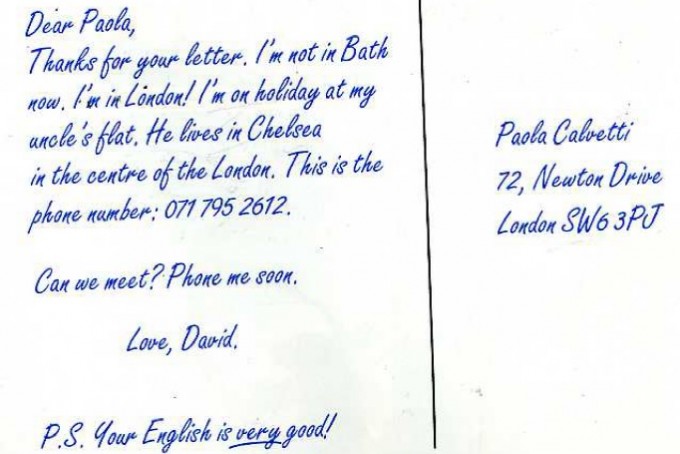 Dear Paola,
Thanks for your letter. I'm not in Bath
now. I'm in London! I'm on holiday at my
uncle's flat. He lives in Chelsea
in the centre of the London. This is the
phone number: 071 795 2612.
Can we meet? Phone me soon.
Love, David.
P.S. Your English is very good!
Paola Calvetti
72, Newton Drive
London SW6 3PJ